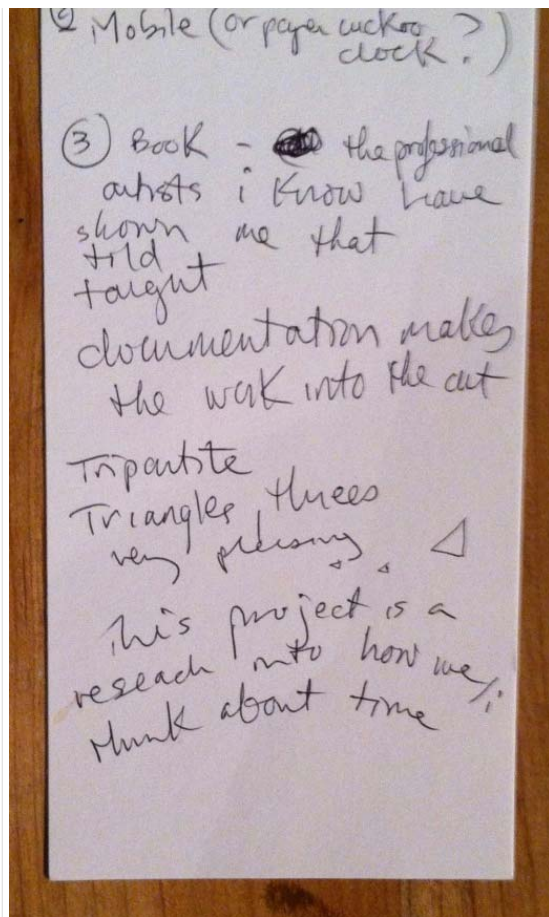 ② Mobile (or paper cuckoo
clock?)
③ Book - the professional
artists i know have
shown me that
told
taught
documentation makes
the work into the art
Tripartite
Triangles, threes
very pleasing
This project is a
reseach into how we/i
think about time